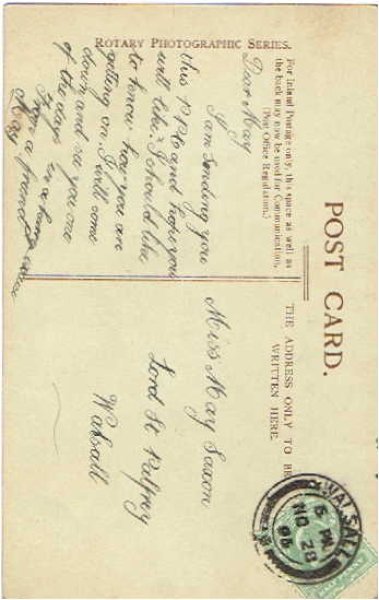 ROTARY PHOTOGRAPHIC SERIES.
POST CARD.
For Inland Postage only, this space as well as
the back may now be used for Communication.
(Post Office Regulation.)
THE ADDRESS ONLY TO BE
WRITTEN HERE.
Dear May
I am sending you
this P.P.C and hope you
will like. I should like
to know how you are
getting on. I will come
down and see you one
of the days
From a friend
Miss May Saxon
Lord St Palfrey
Walsall
WALSALL
5 PM
NO 28